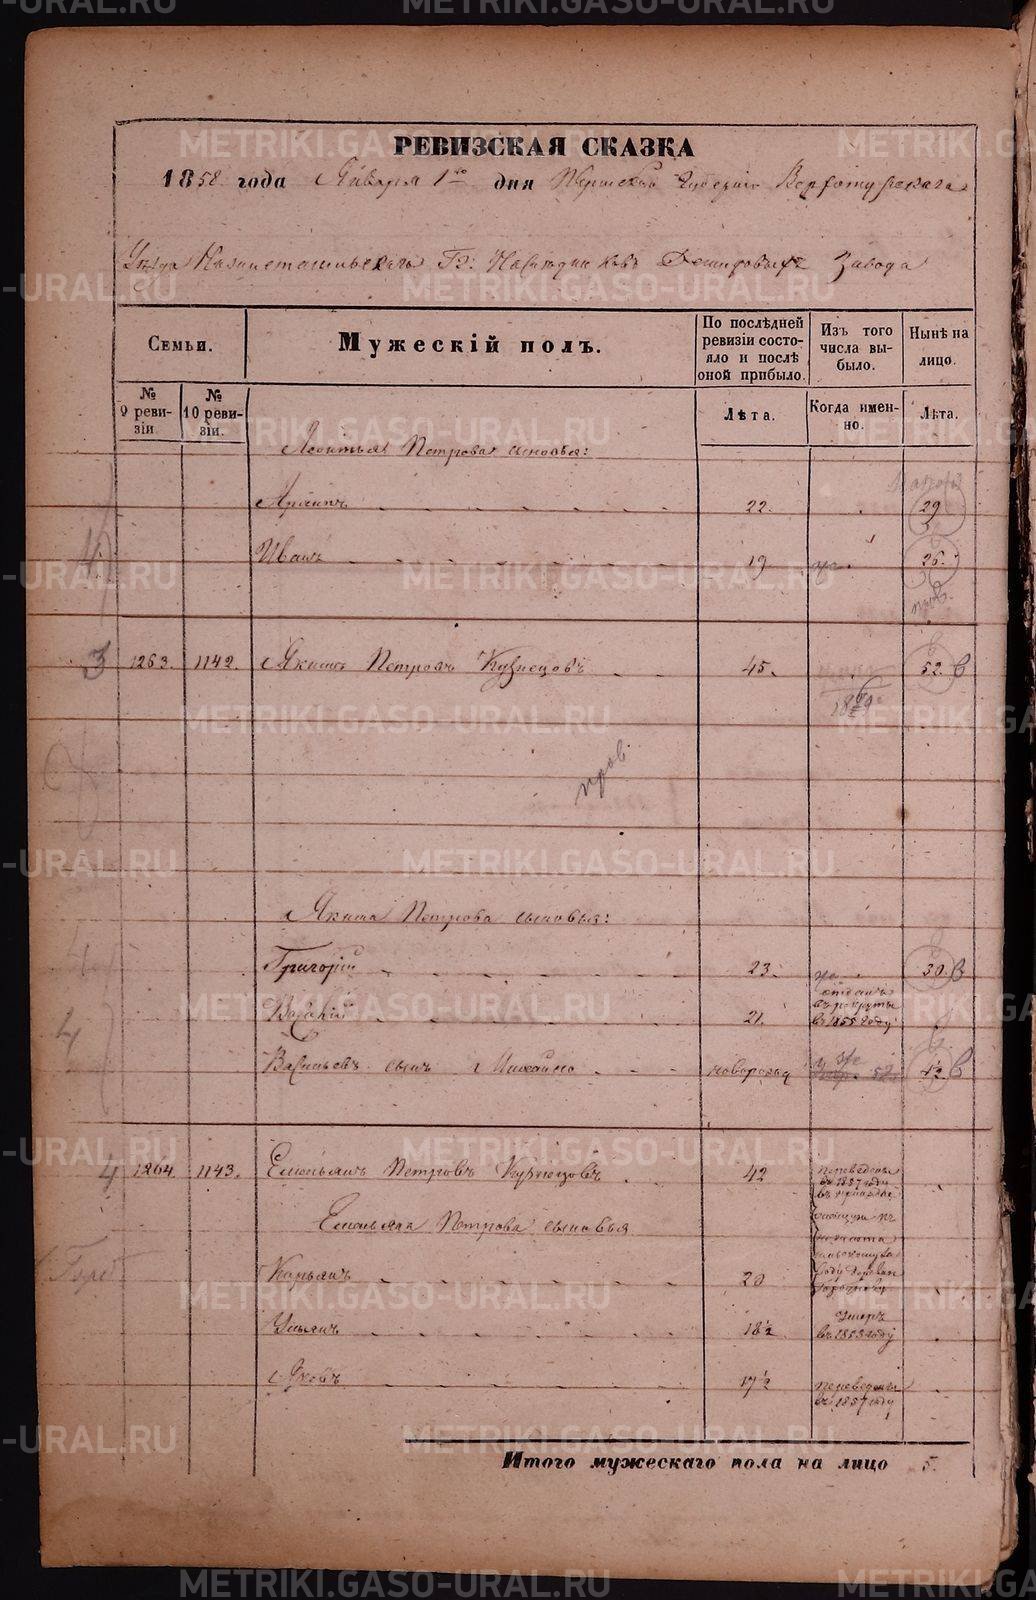 METRIKI.GASO-URAL.RU
РЕВИЗСКАЯ СКАЗКА
1858 года Января 1го дня Пермской Губернии Верхотурскаго
Уезда Нижнетагильскаго Гг. Наследников Демидовых Завода
Семьи.
Мужескій полъ.
По послѣдней ревизіи состояло и послѣ оной прибыло.
Изъ того числа выбыло.
Нынѣ на лицо.
№ 9 ревизіи
№ 10 ревизіи.
Лѣта.
Когда именно.
Лѣта.
Леонтья Петрова сыновья:
Архипъ 22. 29
Иванъ 19 26.
пров.
3 1263. 1142. Якимъ Петровъ Кузнецовъ 45. 52. В
пров
Якима Петрова сыновья:
Григорій 23. 30. В
Василій 21. отданъ въ рекруты въ 1855 году
Васильевъ сынъ Михайло новорожд
4 1264 1143. Емельянъ Петровъ Кузнецовъ 42 переведены въ 1857 году
Емельяна Петрова сыновья
20
Ульянъ 18½ умеръ въ 1853 году
Яковъ 17½ переведены въ 1857 году
Итого мужескаго пола на лицо 5.